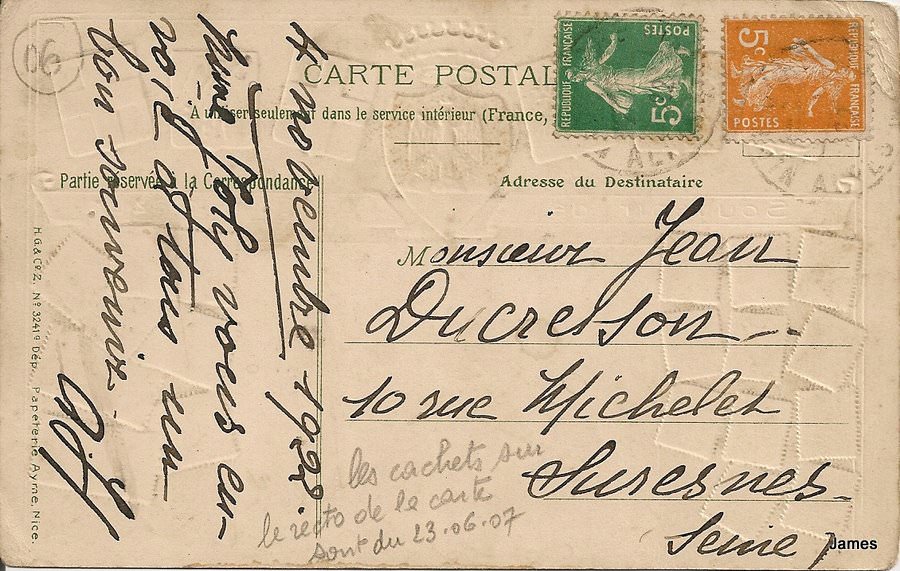 06
CARTE POSTAL
A utiliser seulement dans le service intérieur (France,
RÉPUBLIQUE FRANÇAISE
POSTES
5c
RÉPUBLIQUE FRANÇAISE
POSTES
5c
Partie réservée à la Correspondance
Adresse du Destinataire
4 novembre 1922.
Mme Poly vous en-
voie à tous un
bon souvenir.
Monsieur Jean
Ducresson
10 rue Michelet
Suresnes
Seine
les cachets sur
le recto de la carte
sont du 23.06.07
H.G.& Co. Z. No 32419 Dép. Papeterie Ayme, Nice.
James